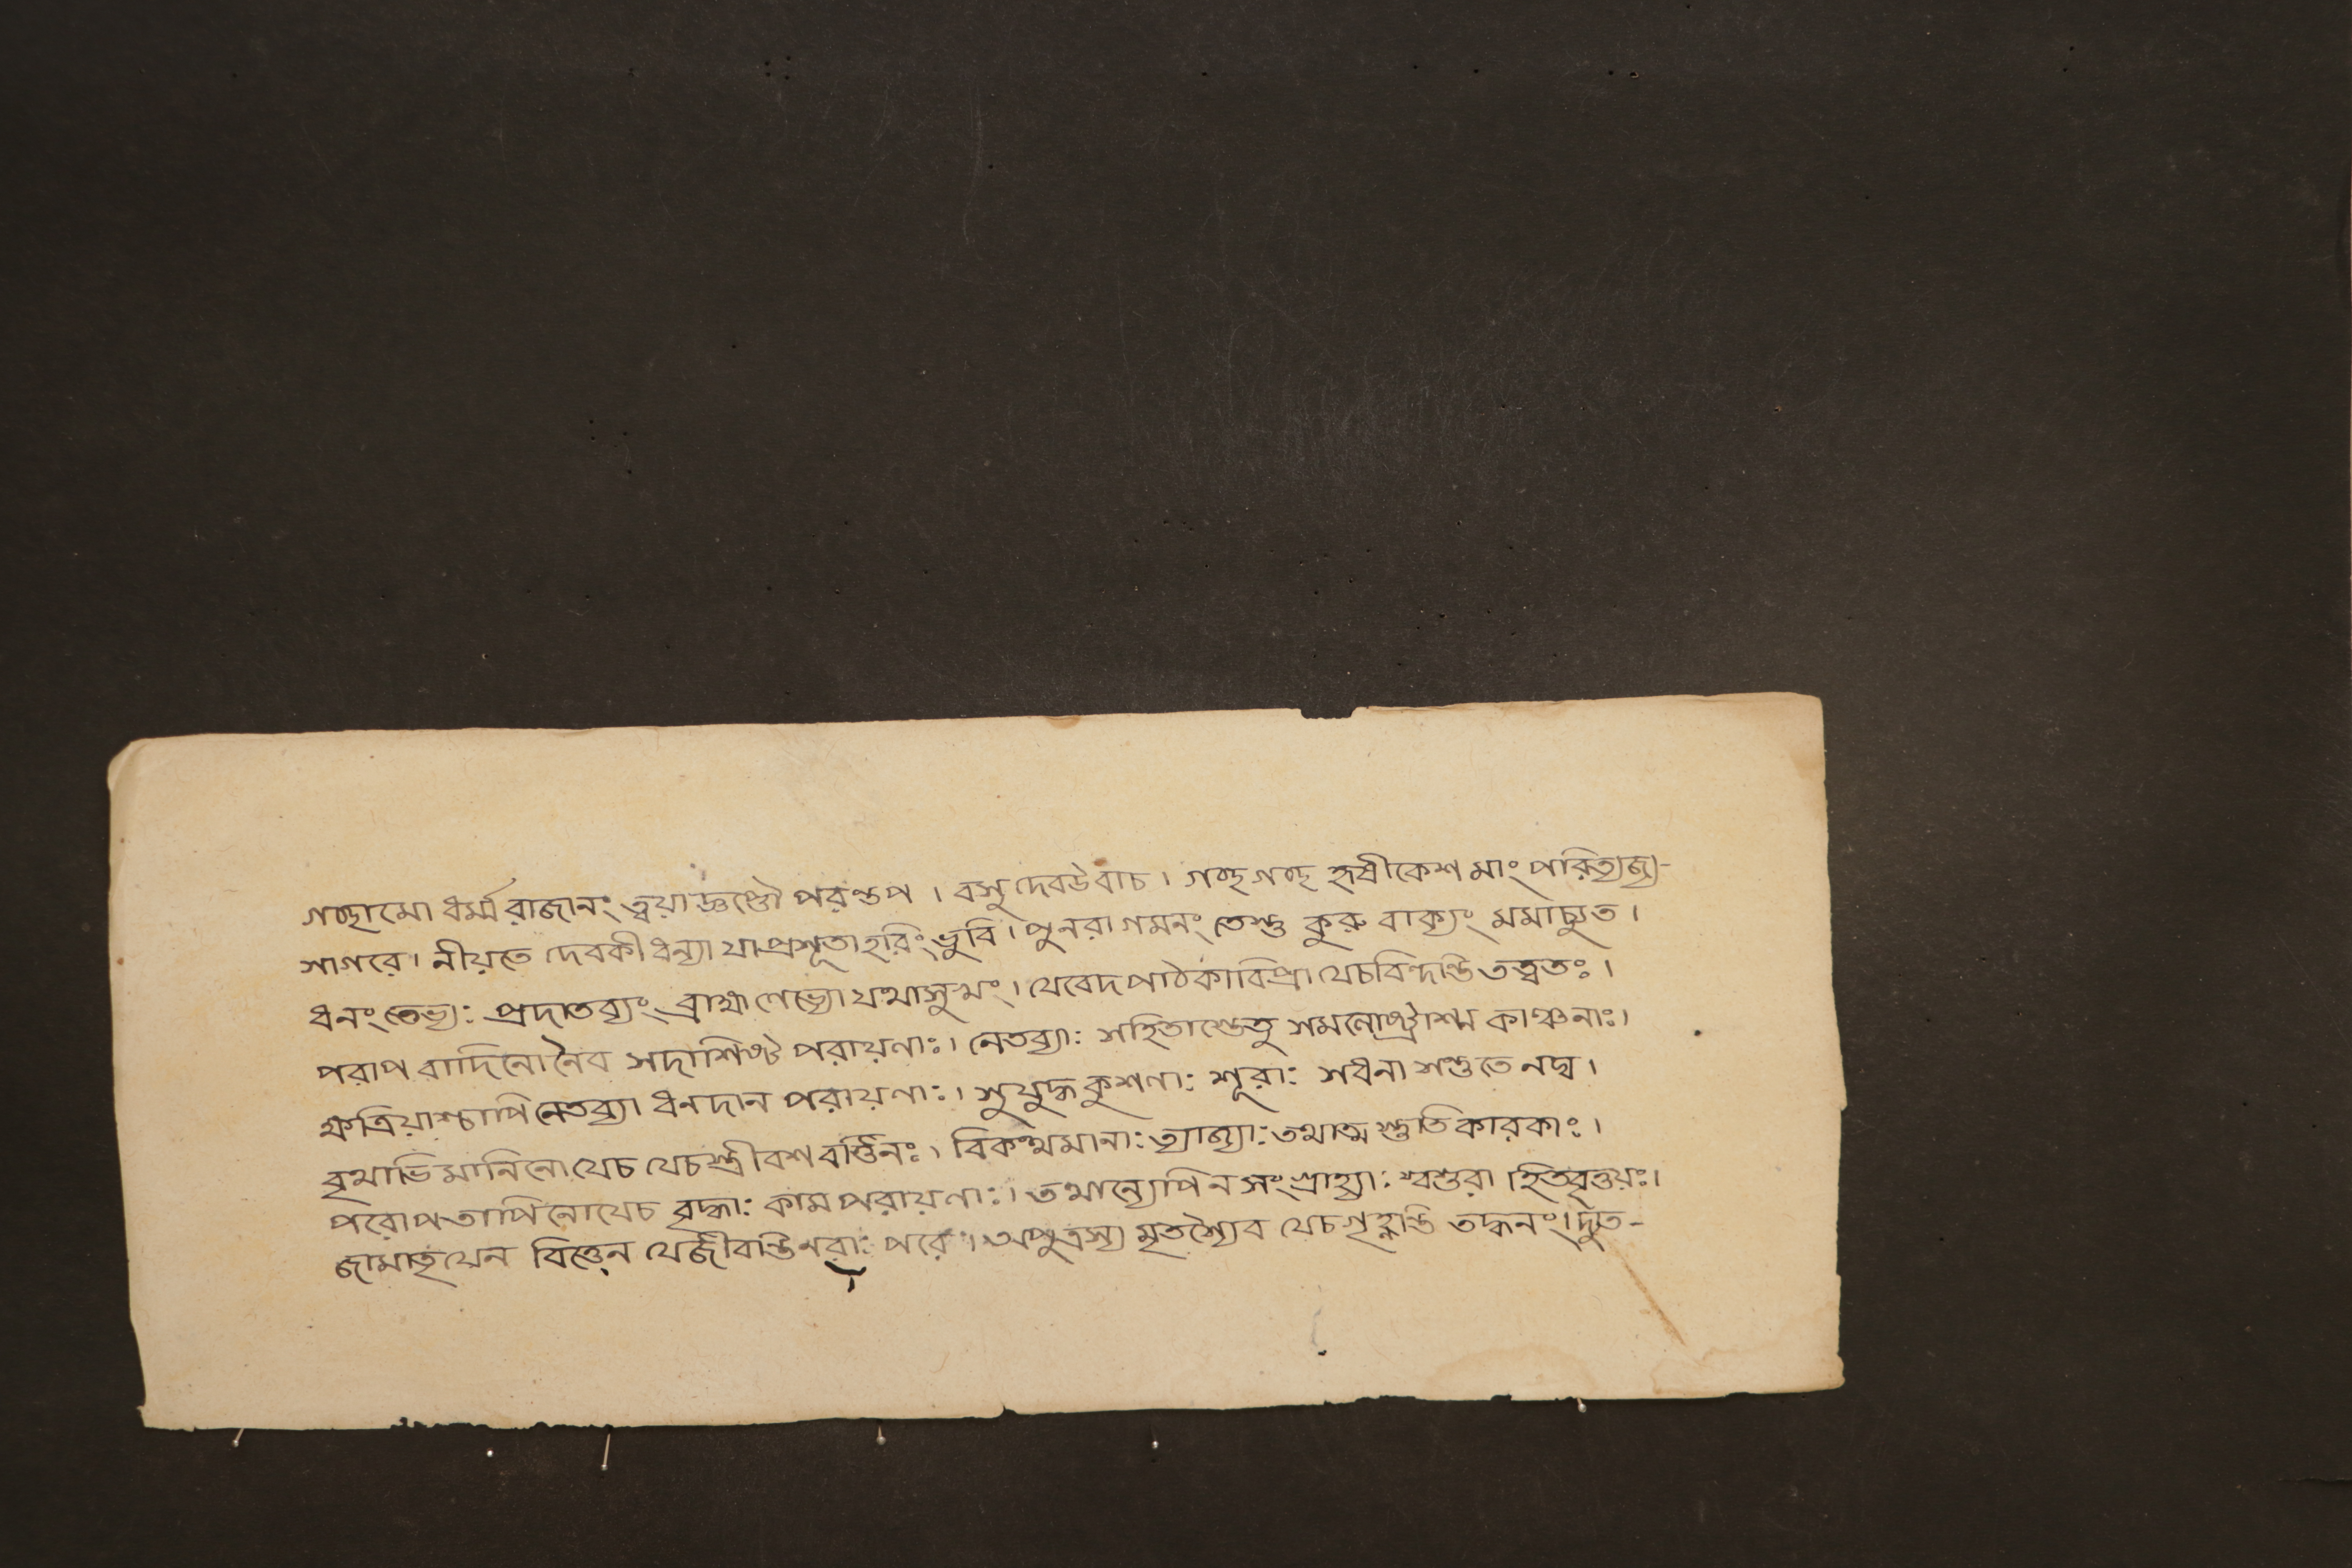 গচ্ছামো ধর্ম্মরাজানং ত্বয়াজ্ঞপ্তৌ পরন্তপ । বসুদেবউবাচ । গচ্ছগচ্ছ হৃষীকেশ মাং পরিত্যজ্য-
সাগরে । নীয়তে দেবকীধন্যা যাপ্রশূতাহরিং ভুবি । পুনরাগমনং তেস্তু কুরু বাক্যং মমাচ্যুত ।
ধনং তেভ্যঃ প্রদাতব্যং ব্রাহ্মণেভ্যো যথাসুখং । যেবেদপাঠকাবিপ্রা যেচবিন্দন্তি তত্ত্বতঃ ।
পরাপবাদিনোনৈব সদাশিষ্ট পরায়ণাঃ । নেতব্যাঃ সহিতাস্তেতু সমলোষ্ট্রাশ্ম কাঞ্চনাঃ ।
ক্ষত্রিয়াশ্চাপি নেতব্যা ধনদান পরায়ণাঃ । সুযুদ্ধকুশলাঃ শূরাঃ সধনা
বৃথাভিমানিনো যেচ যেচস্ত্রীবশবর্ত্তিনঃ । বিকত্থমানাঃ ত্যাজ্যাঃ তথাত্ম স্তুতিকারকাঃ ।
পরোপতাপিনোযেচ বৃদ্ধাঃ কামপরায়ণাঃ । তথান্যেপি নসংগ্রাহ্যাঃ শ্বশুরা হিতবৃত্তয়ঃ ।
জামাতৃযেন বিত্তেন যেজীবন্তিনরাঃ পরে । অপুত্রস্য মৃতশ্যৈব যেচগৃহ্ণন্তি তদ্ধনং । দ্যুত-